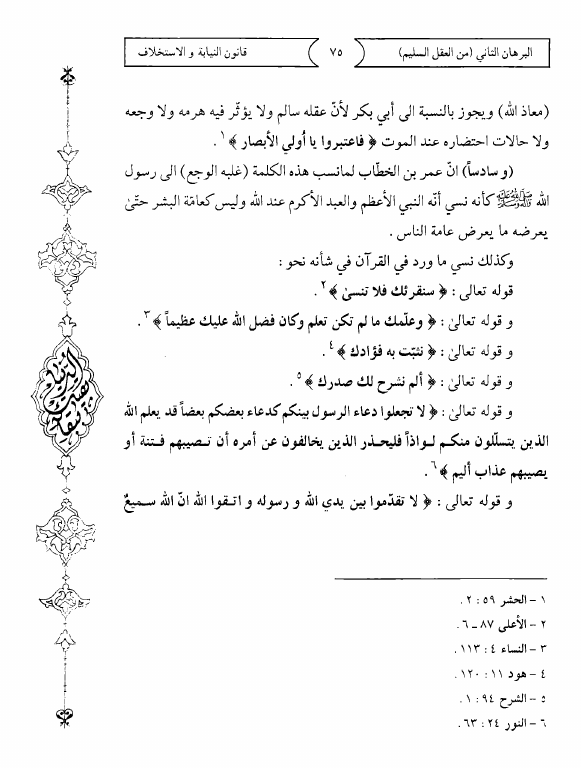 البرهان الثاني (من العقل السليم)
٧٥
قانون النيابة و الاستخلاف
(معاذ الله) ويجوز بالنسبة الى أبي بكر لأنّ عقله سالم ولا يؤثّر فيه هرمه ولا وجعه
ولا حالات احتضاره عند الموت ﴿ فاعتبروا يا أُولي الأبصار ﴾ ١ .
(و سادساً) انّ عمر بن الخطاب لمانسب هذه الكلمة (غلبه الوجع) الى رسول
الله ﷺ كأنه نسي أنّه النبي الأعظم والعبد الأكرم عند الله وليس كعامّة البشر حتّىٰ
يعرضه ما يعرض عامة الناس .
وكذلك نسي ما ورد في القرآن في شأنه نحو :
قوله تعالى : ﴿ سنقرئك فلا تنسىٰ ﴾ ٢ .
و قوله تعالىٰ : ﴿ وعلّمك ما لم تكن تعلم وكان فضل الله عليك عظيماً ﴾ ٣ .
و قوله تعالىٰ : ﴿ نثبّت به فؤادك ﴾ ٤ .
و قوله تعالىٰ : ﴿ ألم نشرح لك صدرك ﴾ ٥ .
و قوله تعالىٰ : ﴿ لا تجعلوا دعاء الرسول بينكم كدعاء بعضكم بعضاً قد يعلم الله
الذين يتسلّلون منكم لـواذاً فليحذر الذين يخالفون عن أمره أن تـصيبهم فـتنة أو
يصيبهم عذاب أليم ﴾ ٦ .
و قوله تعالى : ﴿ لا تقدّموا بين يدي الله و رسوله و اتـقوا الله انّ الله سـميعٌ
١ - الحشر ٥٩ : ٢ .
٢ - الأعلى ٨٧ ـ ٦ .
٣ - النساء ٤ : ١١٣ .
٤ - هود ١١ : ١٢٠ .
٥ - الشرح ٩٤ : ١ .
٦ - النور ٢٤ : ٦٣ .